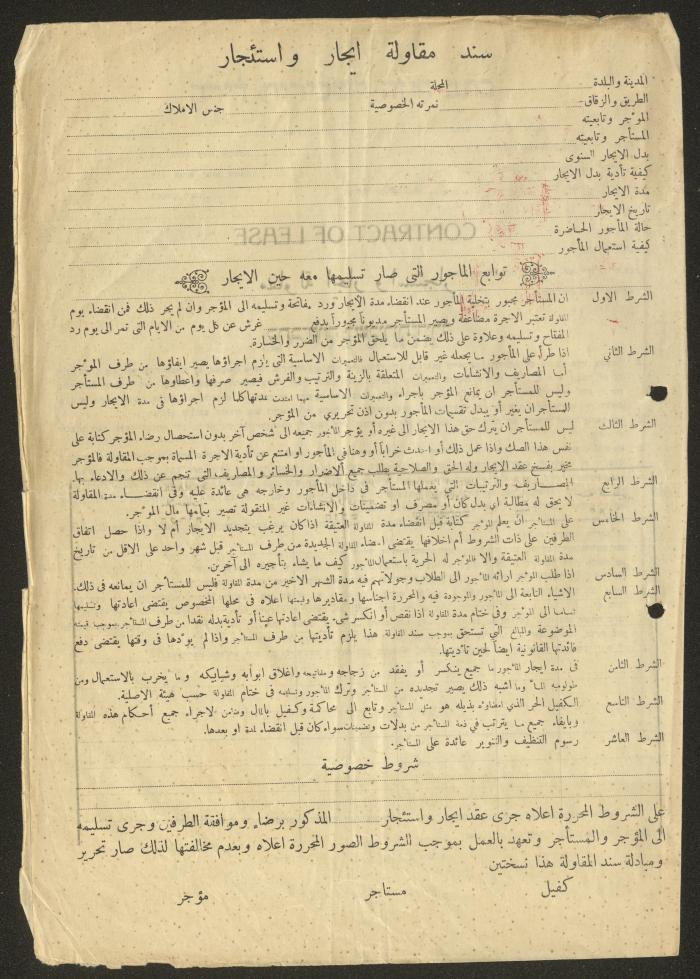 سند مقاولة ايجار واستئجار
المدينة والبلدة المحلة
الطريق والزقاق نمرته الخصوصية جنس الاملاك
المؤجر وتابعيته
المستأجر وتابعيته
بدل الايجار السنوى
كيفية تأدية بدل الايجار
مدة الايجار
تاريخ الايجار
حالة المأجور الحاضرة
كيفية استعمال المأجور
CONTRACT OF LEASE
توابع المأجور التى صار تسليمها معه حين الايجار
الشرط الاول ان المستأجر مجبور بتخلية المأجور عند انقضاء مدة الايجار ورد مفاتحه وتسليمه الى المؤجر وان لم يجر ذلك فمن انقضاء يوم
المقاولة تعتبر الاجرة مضاعفة ويصير المستأجر مديوناً مجبوراً بدفع غرش عن كل يوم من الايام التى تمر الى يوم رد
المفتاح وتسليمه وعلاوة على ذلك يضمن ما يلحق المؤجر من الضرر والخسارة.
الشرط الثانى اذا طرأ على المأجور ما يجعله غير قابل للاستعمال فالتعميرات الاساسية التى يلزم اجراؤها يصير ايفاؤها من طرف المؤجر
أما المصاريف والانشاءات والتعميرات المتعلقة بالزينة والترتيب والفرش فيصير صرفها واعطاؤها من طرف المستأجر
وليس للمستأجر ان يمانع المؤجر باجراء والتعميرات الاساسية مهما امتدت مدتها كلما لزم اجراؤها فى مدة الايجار وليس
المستأجر ان يغير أو يبدل تقسيمات المأجور بدون اذن تحريري من المؤجر.
الشرط الثالث ليس للمستأجر ان يترك حق هذا الايجار الى غيره أو يؤجر المأجور جميعه الى شخص آخر بدون استحصال رضاء المؤجر كتابة على
نفس هذا الصك واذا عمل ذلك أو احدث خراباً أو وهنا فى المأجور او امتنع عن تأدية الاجرة المسماة بموجب المقاولة فالمؤجر
مخير بفسخ عقد الايجار وله الحق والصلاحية بطلب جميع الاضرار والخسائر والمصاريف التى تنجم عن ذلك والادعاء بها.
الشرط الرابع المصاريف والترتيبات التى يعملها المستأجر فى داخل المأجور وخارجه هى عائدة عليه وفى انقضاء مدة المقاولة
لا يحق له مطالبة اي بدل كان أو مصرف او تضمينات والانشاءات غير المنقولة تصير بتمامها مال المؤجر.
الشرط الخامس على المستأجر ان يعلم المؤجر كتابة قبل انقضاء مدة المقاولة العتيقة اذا كان يرغب بتجديد الايجار أم لا واذا حصل اتفاق
الطرفين على ذات الشروط أم اخلافها يقتضى امضاء المقاولة الجديدة من طرف المستأجر قبل شهر واحد على الاقل من تاريخ
مدة المقاولة العتيقة والا فالمؤجر له الحرية باستعمال المأجور كيف ما يشاء بتأجيره الى آخرين.
الشرط السادس اذا طلب المؤجر ارائه المأجور الى الطلاب وجولانهم فيه مدة الشهر الاخير من مدة المقاولة فليس للمستأجر ان يمانعه فى ذلك.
الشرط السابع الاشياء التابعة الى المأجور والموجودة فيه والمحررة اجناسها ومقاديرها وقيمتها اعلاه فى محلها المخصوص يقتضى اعادتها وتسليمها
تماماً الى المؤجر وفى ختام مدة المقاولة اذا نقص أو انكسر شى. يقتضى اعادتها عينا أو تأدية بدله نقدا من طرف المستأجر بموجب قيمته
الموضوعة والمبالغ التى تستحق بموجب سند المقاولة هذا يلزم تأديتها من طرف المستأجر واذا لم يؤدها فى وقتها يقتضى دفع
فائدتها القانونية ايضا لحين تأديتها.
الشرط الثامن فى مدة ايجار المأجور ما جميع ينكسر أو يفقد من زجاجه ومفاتيحه واغلاق ابوابه وشبابيكه وما يخرب بالاستعمال ومن
طولومبه الماء وما اشبه ذلك يصير تجديده من المستأجر وترك المأجور وتسليمه فى ختام المقاولة حسب هيئة الاصلية.
الشرط التاسع الكفيل الحر الذى امضاؤه بذيله هو مثل المستأجر وتابع الى محاكمة وكفيل بالمال وضامن لاجراء جميع أحكام هذه المقاولة
وبايفاء جميع ما يترتب فى ذمة المستأجر من بدلات وتضمينات سواء كان قبل انقضاء المدة او بعدها.
الشرط العاشر رسوم التنظيف والتنوير عائدة على المستأجر.
شروط خصوصية
على الشروط المحررة اعلاه جرى عقد ايجار واستئجار المذكور برضاء وموافقة الطرفين وجرى تسليمه
الى المؤجر والمستأجر وتعهد بالعمل بموجب الشروط الصور المحررة اعلاه وبعدم مخالفتها لذلك صار تحرير
ومبادلة سند المقاولة هذا نسختين
كفيل مستاجر مؤجر